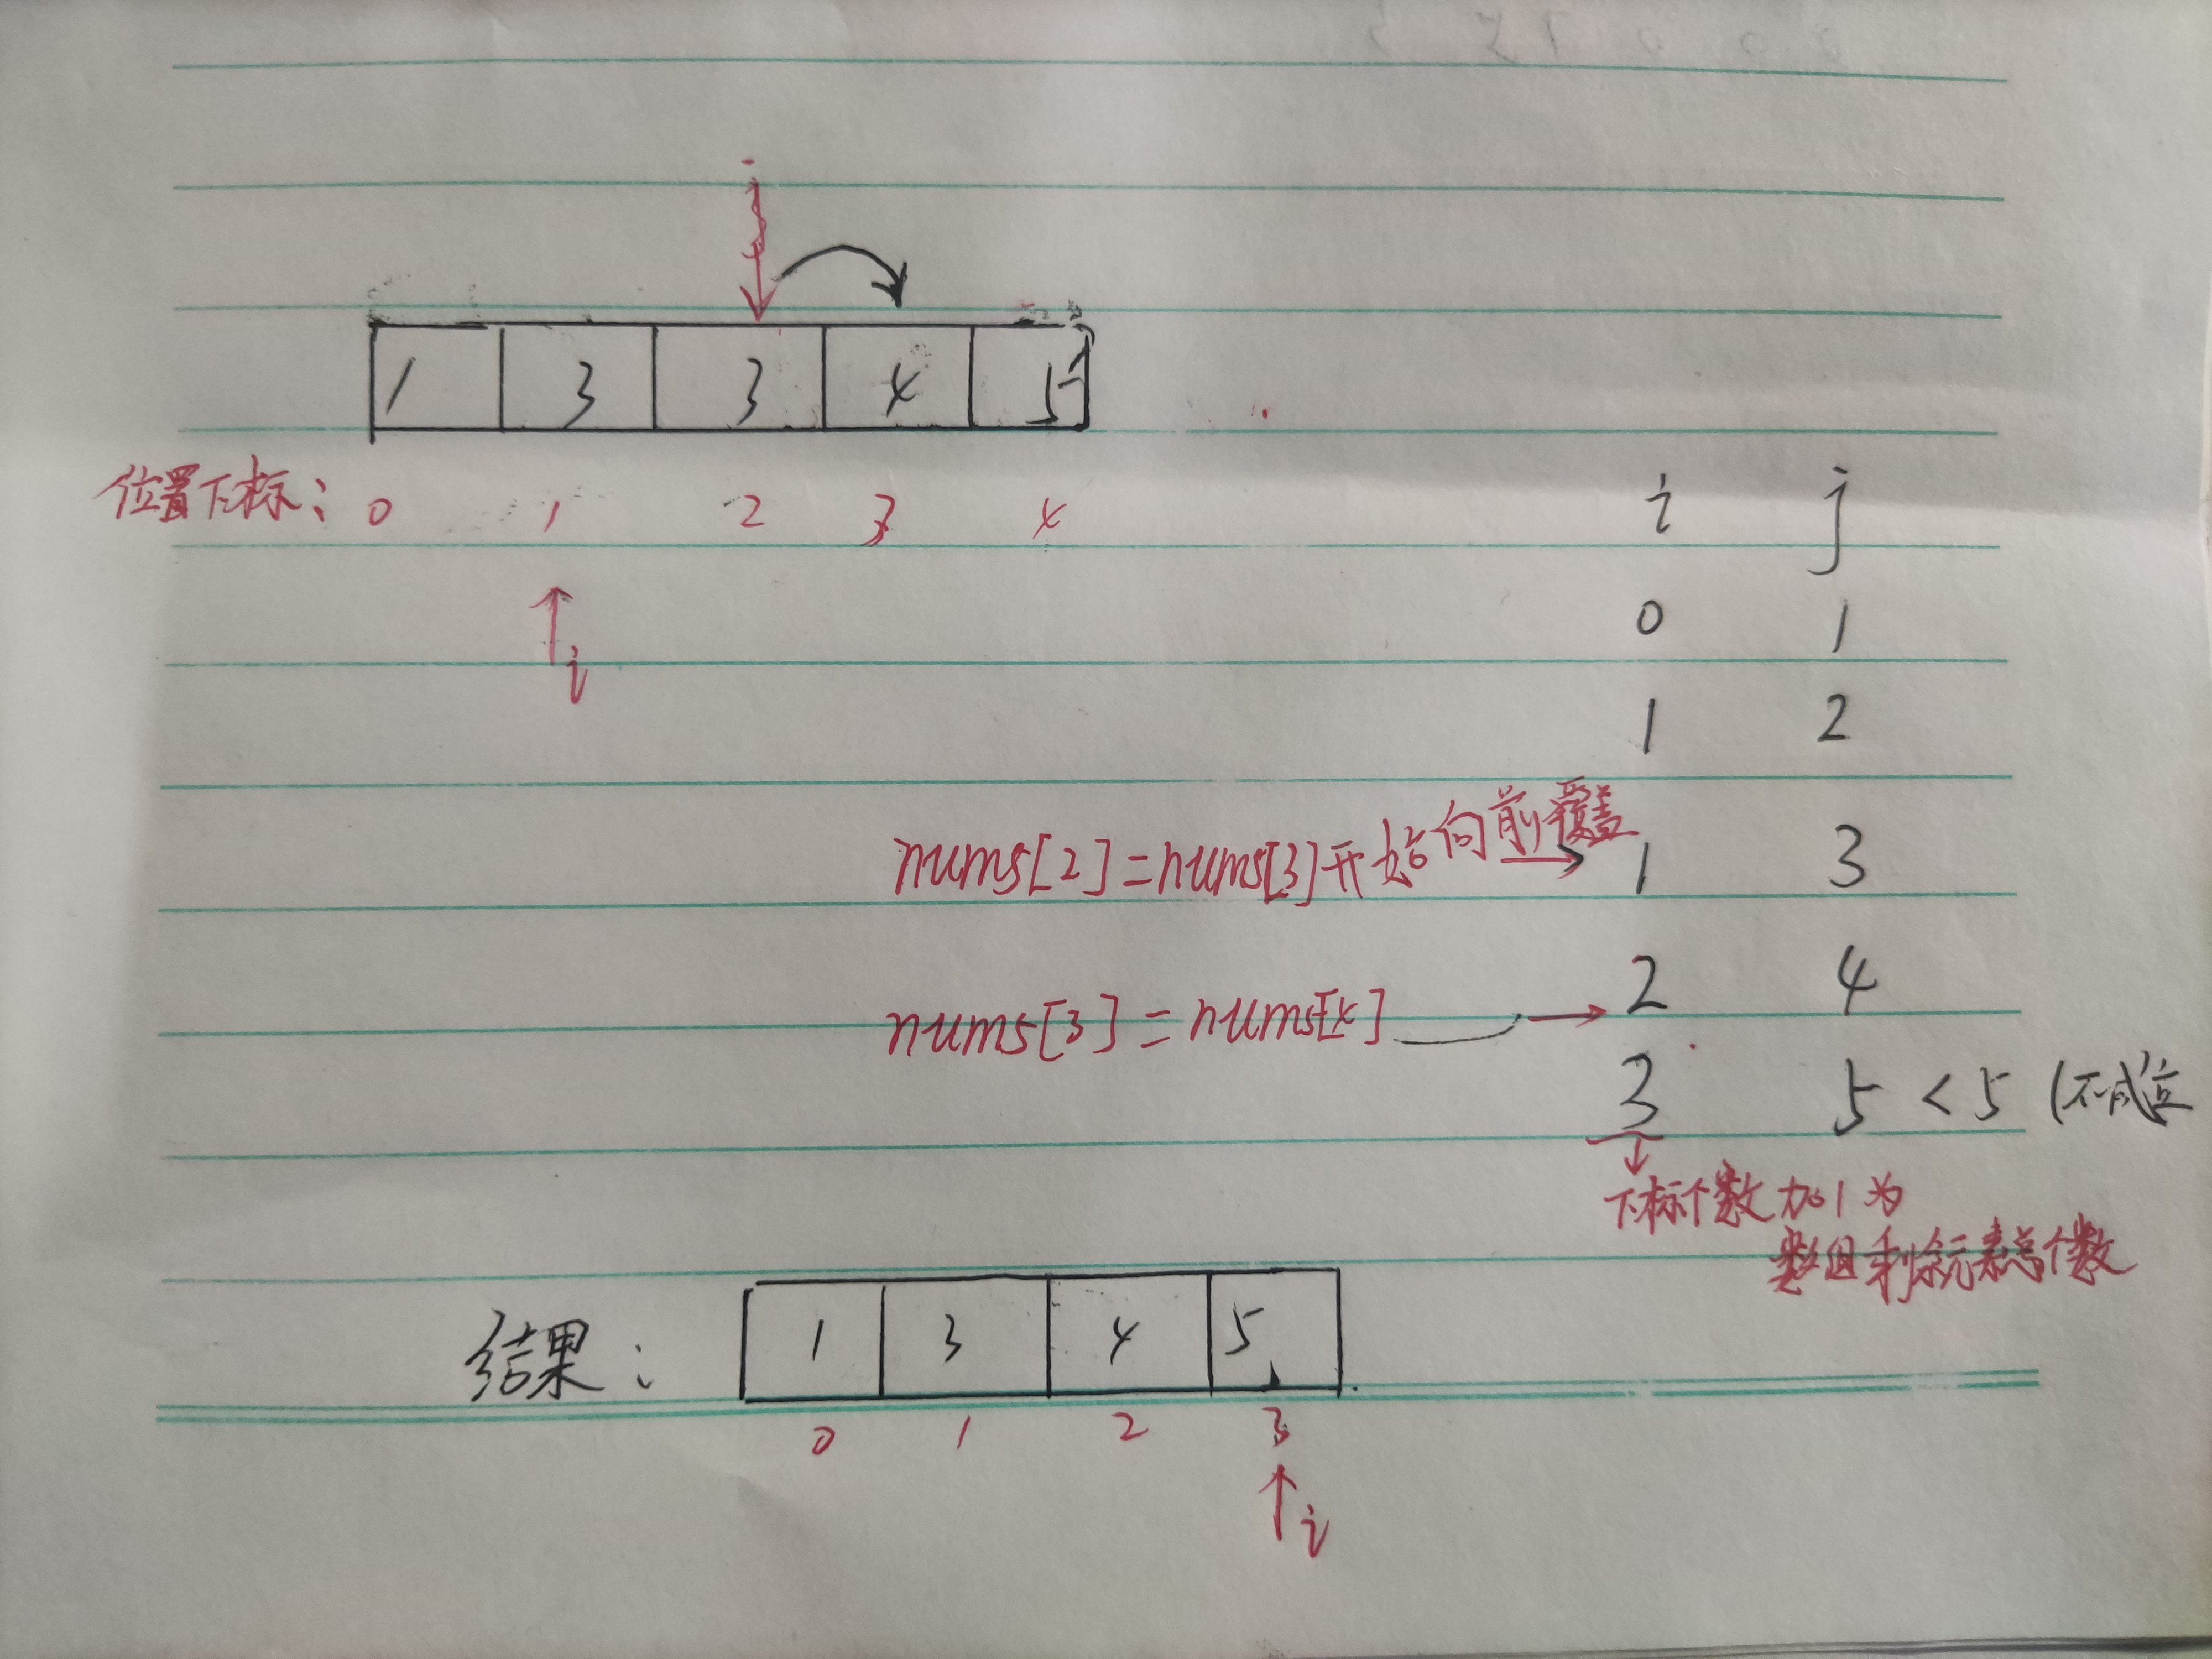 j
1 3 3 4 5
位置下标: 0 1 2 3 4
i j
i
0 1
1 2
nums[2]=nums[3]开始向前覆盖 1 3
nums[3]=nums[4] 2 4
3 5<5 (不成立
下标个数加1为
数组剩余元素总个数
结果:
1 3 4 5
0 1 2 3
i